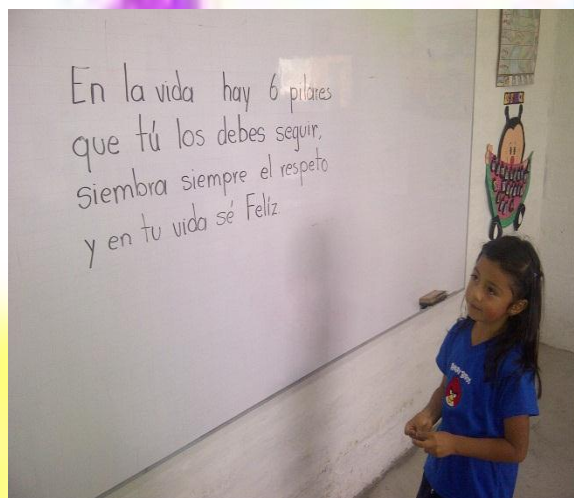 En la vida hay 6 pilares
que tú los debes seguir,
siembra siempre el respeto
y en tu vida sé Feliz.
ANGRY BIRDS